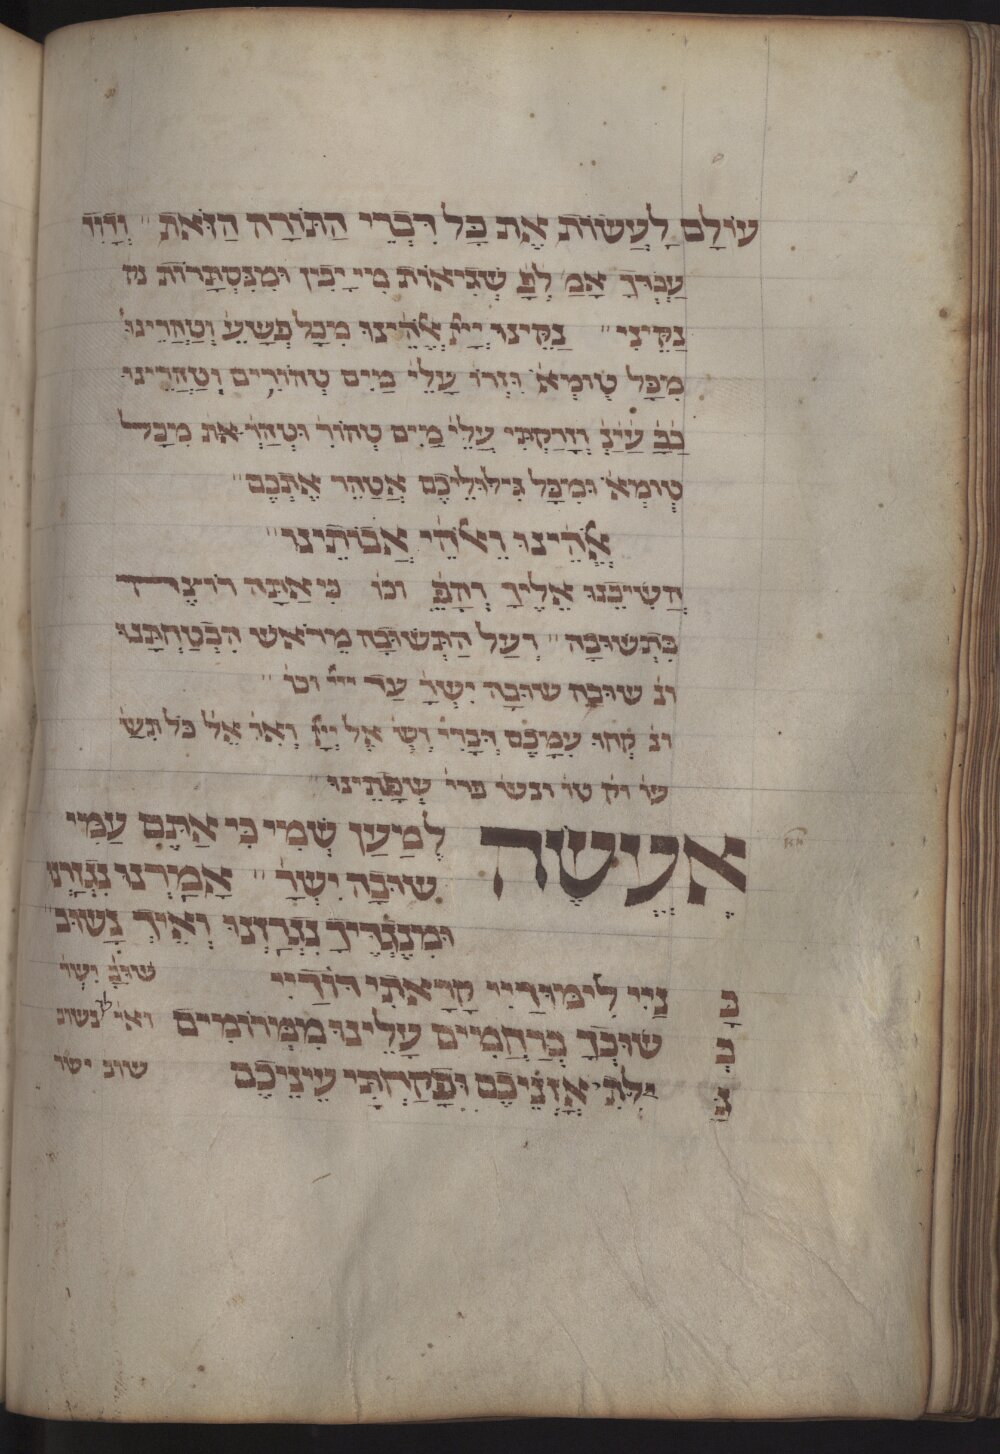 עוֹלָם לַעֲשׂוֹת אֶת כָּל דִּבְרֵי הַתּוֹרָה הַזֹּאת״ וְדָוִד
עַבְדְּךָ אָמַ לְפָ שְׁגִיאוֹת מִי יָבִין וּמִנִּסְתָּרוֹת נק
נַקֵּינִי״ נַקֵּינוּ יְיָ אֱלֹהֵינוּ מִכָּל פְּשָׁעֵ וְטַהֲרֵינוּ
מִכָּל טוּמְאֹ וּזְרוֹ עָלֵי מַיִם טְהוֹרִים וְטַהֲרֵינוּ
כַּכָּ עַיַנְ וְזָרַקְתִּי עֲלֵי מַיִם טְהוֹר וּטְהַרְ את מִכָּל
טוּמְאֹ וּמִכָּל גִּילוּלֵיכֶם אֲטַהֵר אֶתְכֶם״
אֱלֹהֵינוּ וֵאלֹהֵי אֲבוֹתֵינוּ״
הֲשִׁיבֵנוּ אֵלֶיךָ וְהָפֵ וכו כִּי אַתָּה רוֹצֶה
בִּתְשׁוּבָה״ וְעַל הַתְּשׁוּבָה מֵרֹאשׁ הִבְטַחְתָּנוּ
ונ שׁוּבָה שׁוּבָה יִשְׂרָ עַד ייי וט״
ונ קְחוּ עִמָּכֶם דְּבָרִי וְשׁ אל יְיָ וְאִר אֵל כּל תשׂ
עו וק טו ונש פרי שְׂפָתֵינוּ״
אֶעֱשֶׂה לְמַעַן שְׁמִי כִּי אַתֶּם עַמִּי
שׁוּבָה יִשְׂרָ״ אָמַרְנוּ נִגְזַרְנוּ
וּמִנֶּגְדֶּיךָ נִגְרַזְנוּ וְאֵיךְ נָשׁוּב״
בָּ נַיי לִימּוּדַיי קָרָאתִי הוֹדַיי שׁוּבָ ישׂר
בְּ שׁוּבְךָ בְּרַחֲמִים עָלֵינוּ מִמְּרוֹמִים ואיך נשוב
גִּ ילִּתִי אָזְנֵיכֶם וּפָקַחְתִּי עֵינֵיכֶם שוב ישר